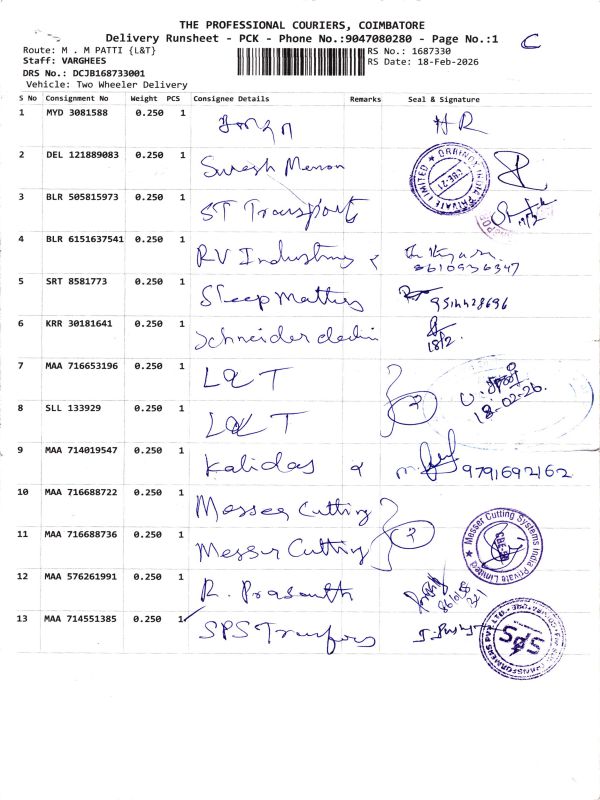 THE PROFESSIONAL COURIERS, COIMBATORE
Delivery Runsheet - PCK - Phone No.:9047080280 - Page No.:1
C
Route: M . M PATTI {L&T}
RS No.: 1687330
Staff: VARGHEES
RS Date: 18-Feb-2026
DRS No.: DCJB168733001
Vehicle: Two Wheeler Delivery
S No Consignment No Weight PCS Consignee Details Remarks Seal & Signature
1 MYD 3081588 0.250 1 HR
2 DEL 121889083 0.250 1 Suresh Menon
3 BLR 505815973 0.250 1 ST Transports
4 BLR 6151637541 0.250 1 RV Industries
5 SRT 8581773 0.250 1
6 KRR 30181641 0.250 1 Schneider 18/2.
7 MAA 716653196 0.250 1 L&T
18-02-26.
8 SLL 133929 0.250 1 L&T
9 MAA 714019547 0.250 1 Kalidas 9791692162
10 MAA 716688722 0.250 1 Messer Cutting
11 MAA 716688736 0.250 1 Messer Cutting
Messer Cutting Systems India Private Limited
12 MAA 576261991 0.250 1 R. Prasanth
13 MAA 714551385 0.250 1 SPS
SPS